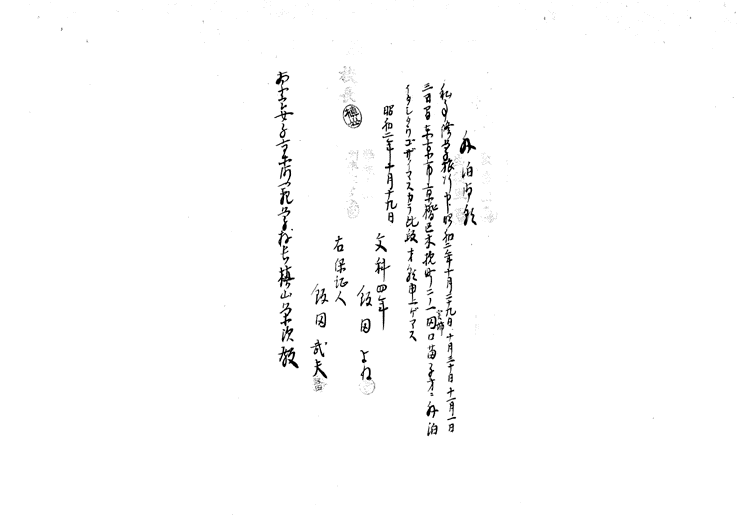 外泊御願
私事修学旅行中昭和二年十月二十九日、十月三十日、十一月一日
三日間東京市京橋区木挽町二ノ一 田口苗子方ニ外泊
イタシタウゴザイマスカラ此段オ願申上ゲマス
昭和二年十月十九日
文科四年
飯田よね
右保証人
飯田武夫
校長
奈良女子高等師範学校長槙山栄次殿